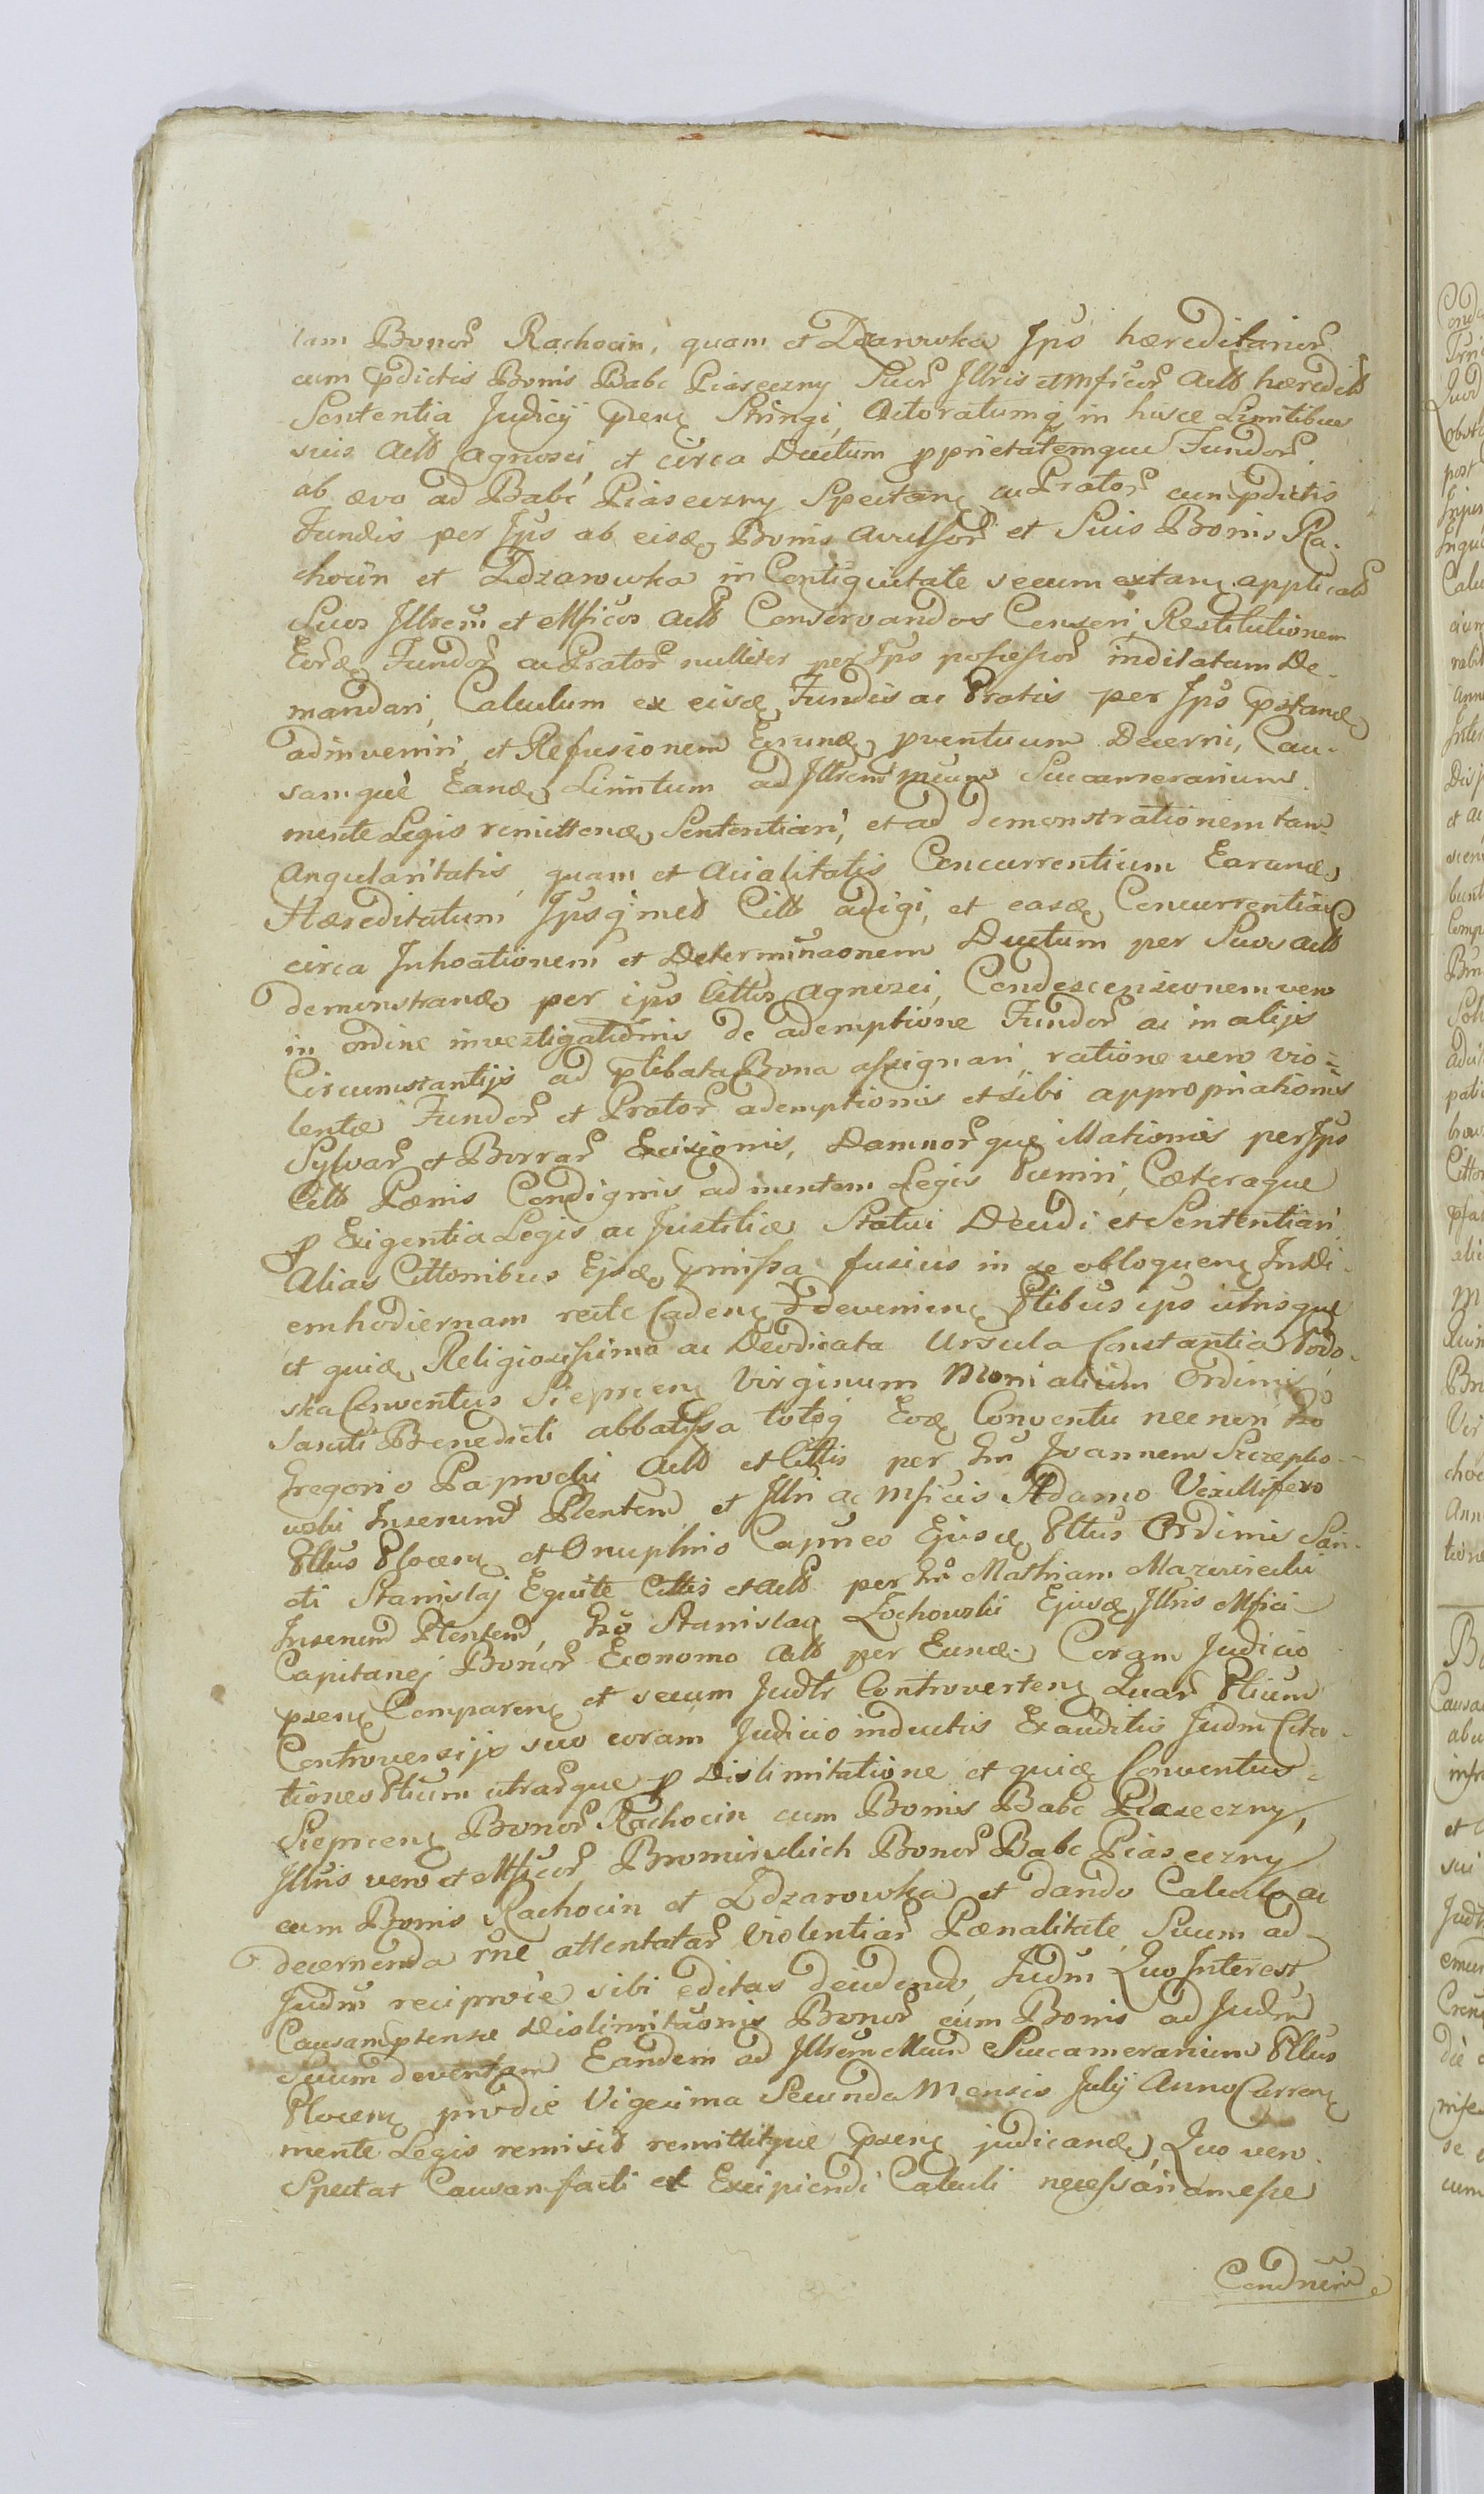 tam Bonor Rachocin, quam et Dzarowka Ips hæreditarior
cum pdictis Bonis Babc Piaseczny Suor Illris et Mficor Actt hæredit
Sententia Judicij psenς Stringi, Actoratumq in hisce Limitibus
suis Actt agnosci, et circa Ductum pprietatemque Fundor
ab ævo ad Babc Piaseczny Spectanς ac Prator cum pdictis
Fundis per Ips ab eisdę Bonis avulsor et Suis Bonis Ra-
chocin et Zdzarowka in Contiguitate secum extanς applicat
Suos Illrem et Mficos Actt Conservandos Censeri, Restitutionem
Eordę Fundor ac Prator nulliter per Ips possessor indilatam De-
mandari, Calculum ex eisdę Fundis ac Pratis per Ips pstandę
adinveniri, et Refusionem Eorundę pventuum Decerni, Cau-
samque Eandę Limitum ad Illrem Mcum Succamerarium
mente Legis remittendę Sententiari, et ad demonstrationem tam
Angularitatis, quam et Acialitatis Concurrentium Earundę
Hæreditatum Ipsq met Citt adigi, et easdę Concurrentias
circa Inhoationem et Determinaonem Ductum per Suos Actt
demonstrandę per ips Cittos agnosci, Condescensionem vero
in ordine investigationis de ademptione Fundor ac in alijs
Circumstantijs ad plibata Bona assignari, ratione vero vio-
lentæ Fundor et Prator ademptionis et sibi appropriationis
Sylvar et Borrar Excisionis, Damnorque illationis per Ips
Citt Pænis Condignis ad mentem Legis Puniri, Cæteraque
p Exigentia Legis ac Justitiæ Statui Decidi et Sententiari
Alias Cittonibus Ejsdę pmissa fusius in se obloquenς In Di-
em hodiernam recte Cadenς et devenienς Ptibus ips utrisque
et quidę Religiosissima ac Deodicata Ursula Constantia Podo-
ska Conventus Sieprcenς Virginum Monialium Ordinis
Sancti Benedicti abbatissa totoq Eodę Conventu necnon Gso
Gregorio Paprocki Actt et Cittis per Gm Joannem Szczepko-
wski Inserund Plentend et Illri ac Mficis Adamo Vexillifero
Pttus Plocenς et Onuphrio Capneo Ejusdę Pttus Ordinis San-
cti Stanislaj Equite Cittis et Actt per Gm Mathiam Mazowiecki
Inserund Plentend, Gso Stanislao Zochowski Ejusdę Illris Mfici
Capitanej Bonor Economo Actt per Eundę Coram Judicio
psenς Comparenς et secum Judtr Controvertenς Quar Ptium
Controversijs suo coram Judicio inductis Exauditis Judm Cita-
tiones Ptium utrarque p Dislimitatione et quidę Conventus
Sieprcenς Bonor Rachocin cum Bonis Babc Piaseczny,
Illris vero et Mficor Bromirskich Bonor Babc Piaseczny
cum Bonis Rachocin et Zdzarowka et dando Calculo ac
decernenda rne attentatar Violentiar Pænalitate, Suum ad
Judm reciproce sibi editas decidendo, Judm Quo Interest
Causam psense Dislimitaonis Bonor cum Bonis ad Judm
Suum deventam Eandem ad Illrem Mcum Succamerarium Pttus
Plocenς pro die Vigesima Secunda Mensis Julij Anno Currenς
mente Legis remisit remittitque psenς judicandę, Quo vero
Spectat Causam facti et Excipiendi Calculi necessariam esse
Condnem